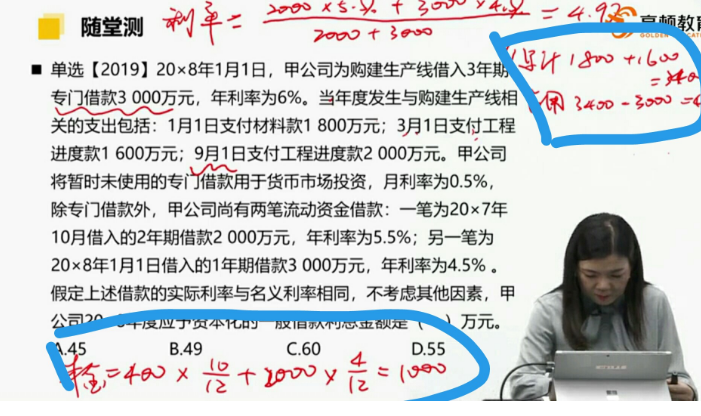 随堂测
利率 = (2000×5.5% + 3000×4.5%) / (2000+3000) = 4.9%
高顿教育
累计 1800+1600
=3400
用 3400-3000=4
■ 单选【2019】20×8年1月1日，甲公司为购建生产线借入3年期
专门借款3 000万元，年利率为6%。当年度发生与购建生产线相
关的支出包括：1月1日支付材料款1 800万元；3月1日支付工程
进度款1 600万元；9月1日支付工程进度款2 000万元。甲公司
将暂时未使用的专门借款用于货币市场投资，月利率为0.5%，
除专门借款外，甲公司尚有两笔流动资金借款：一笔为20×7年
10月借入的2年期借款2 000万元，年利率为5.5%；另一笔为
20×8年1月1日借入的1年期借款3 000万元，年利率为4.5% 。
假定上述借款的实际利率与名义利率相同，不考虑其他因素，甲
公司20×8年度应予资本化的一般借款利息金额是（ ）万元。
A.45 B.49 C.60 D.55
本金=400×10/12+2000×4/12=1000